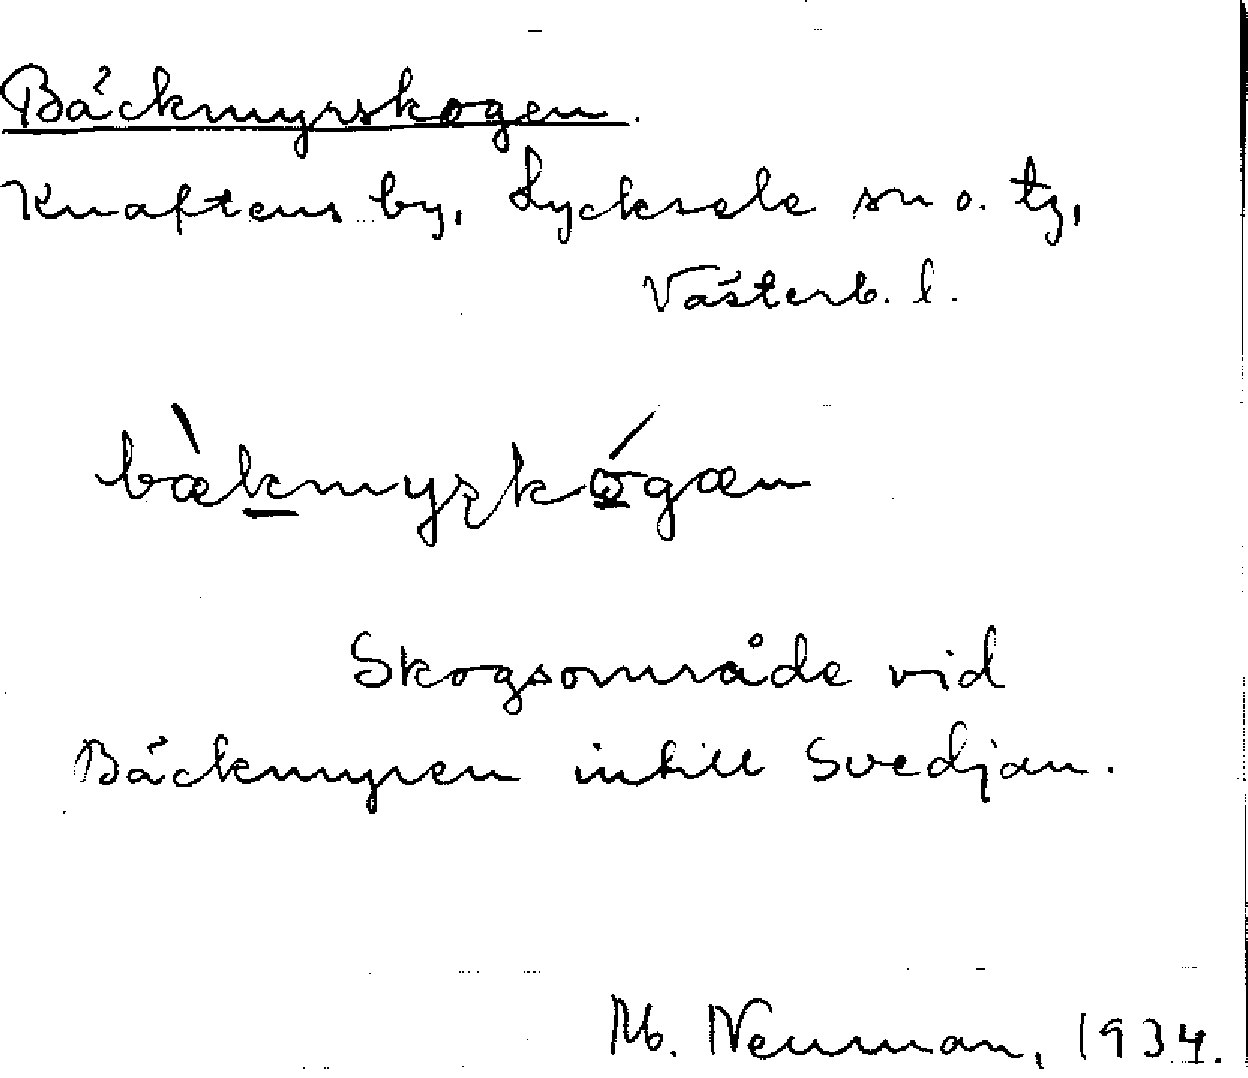 Bäckmyrskogen.
Knaftens by, Lycksele sn o. tg,
Västerb. l.
bæ̀kmyʂkó̱gæn
Skogsområde vid
Bäckmyren intill Svedjan.
M. Neuman, 1934.